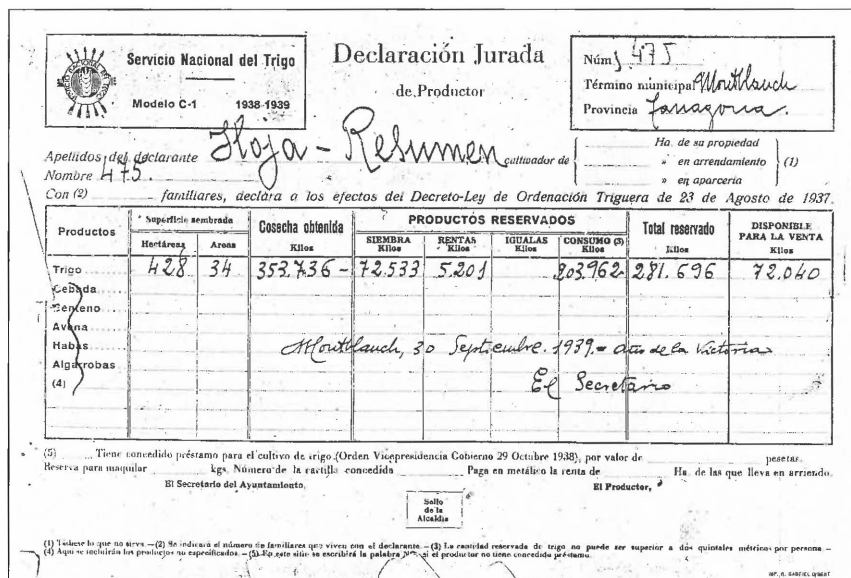 Servicio Nacional del Trigo
Modelo C-1 1938-1939
Declaración Jurada
de Productor
Núm. 475
Término municipal Montblanch
Provincia Tarragona.
Apellidos del declarante Hoja-Resumen cultivador de
Nombre 475.
Ha. de su propiedad
» en arrendamiento (1)
» en aparcería
Con (2) familiares, declara a los efectos del Decreto-Ley de Ordenación Triguera de 23 de Agosto de 1937.
Productos Superficie sembrada Cosecha obtenida PRODUCTOS RESERVADOS Total reservado DISPONIBLE PARA LA VENTA
Hectáreas Areas Kilos SIEMBRA Kilos RENTAS Kilos IGUALAS Kilos CONSUMO (3) Kilos Kilos Kilos
Trigo 428 34 353.736- 72.533 5.201 203.962- 281.696 72.040
Cebada
Centeno
Avena
Habas
Algarrobas
(4)
Montblanch, 30 Septiembre. 1939.- año de la Victoria
El Secretario
(5) Tiene concedido préstamo para el cultivo de trigo (Orden Vicepresidencia Gobierno 29 Octubre 1938), por valor de pesetas.
Reserva para maquilar kgs. Número de la cartilla concedida Paga en metálico la renta de Ha. de las que lleva en arriendo.
El Secretario del Ayuntamiento, El Productor,
Sello
de la
Alcaldía
(1) Táchese lo que no sirva.—(2) Se indicará el número de familiares que viven con el declarante.—(3) La cantidad reservada de trigo no puede ser superior a dos quintales métricos por persona.—
(4) Aquí se incluirán los productos no especificados.—(5) En este sitio se escribirá la palabra si el productor no tiene concedido préstamo.